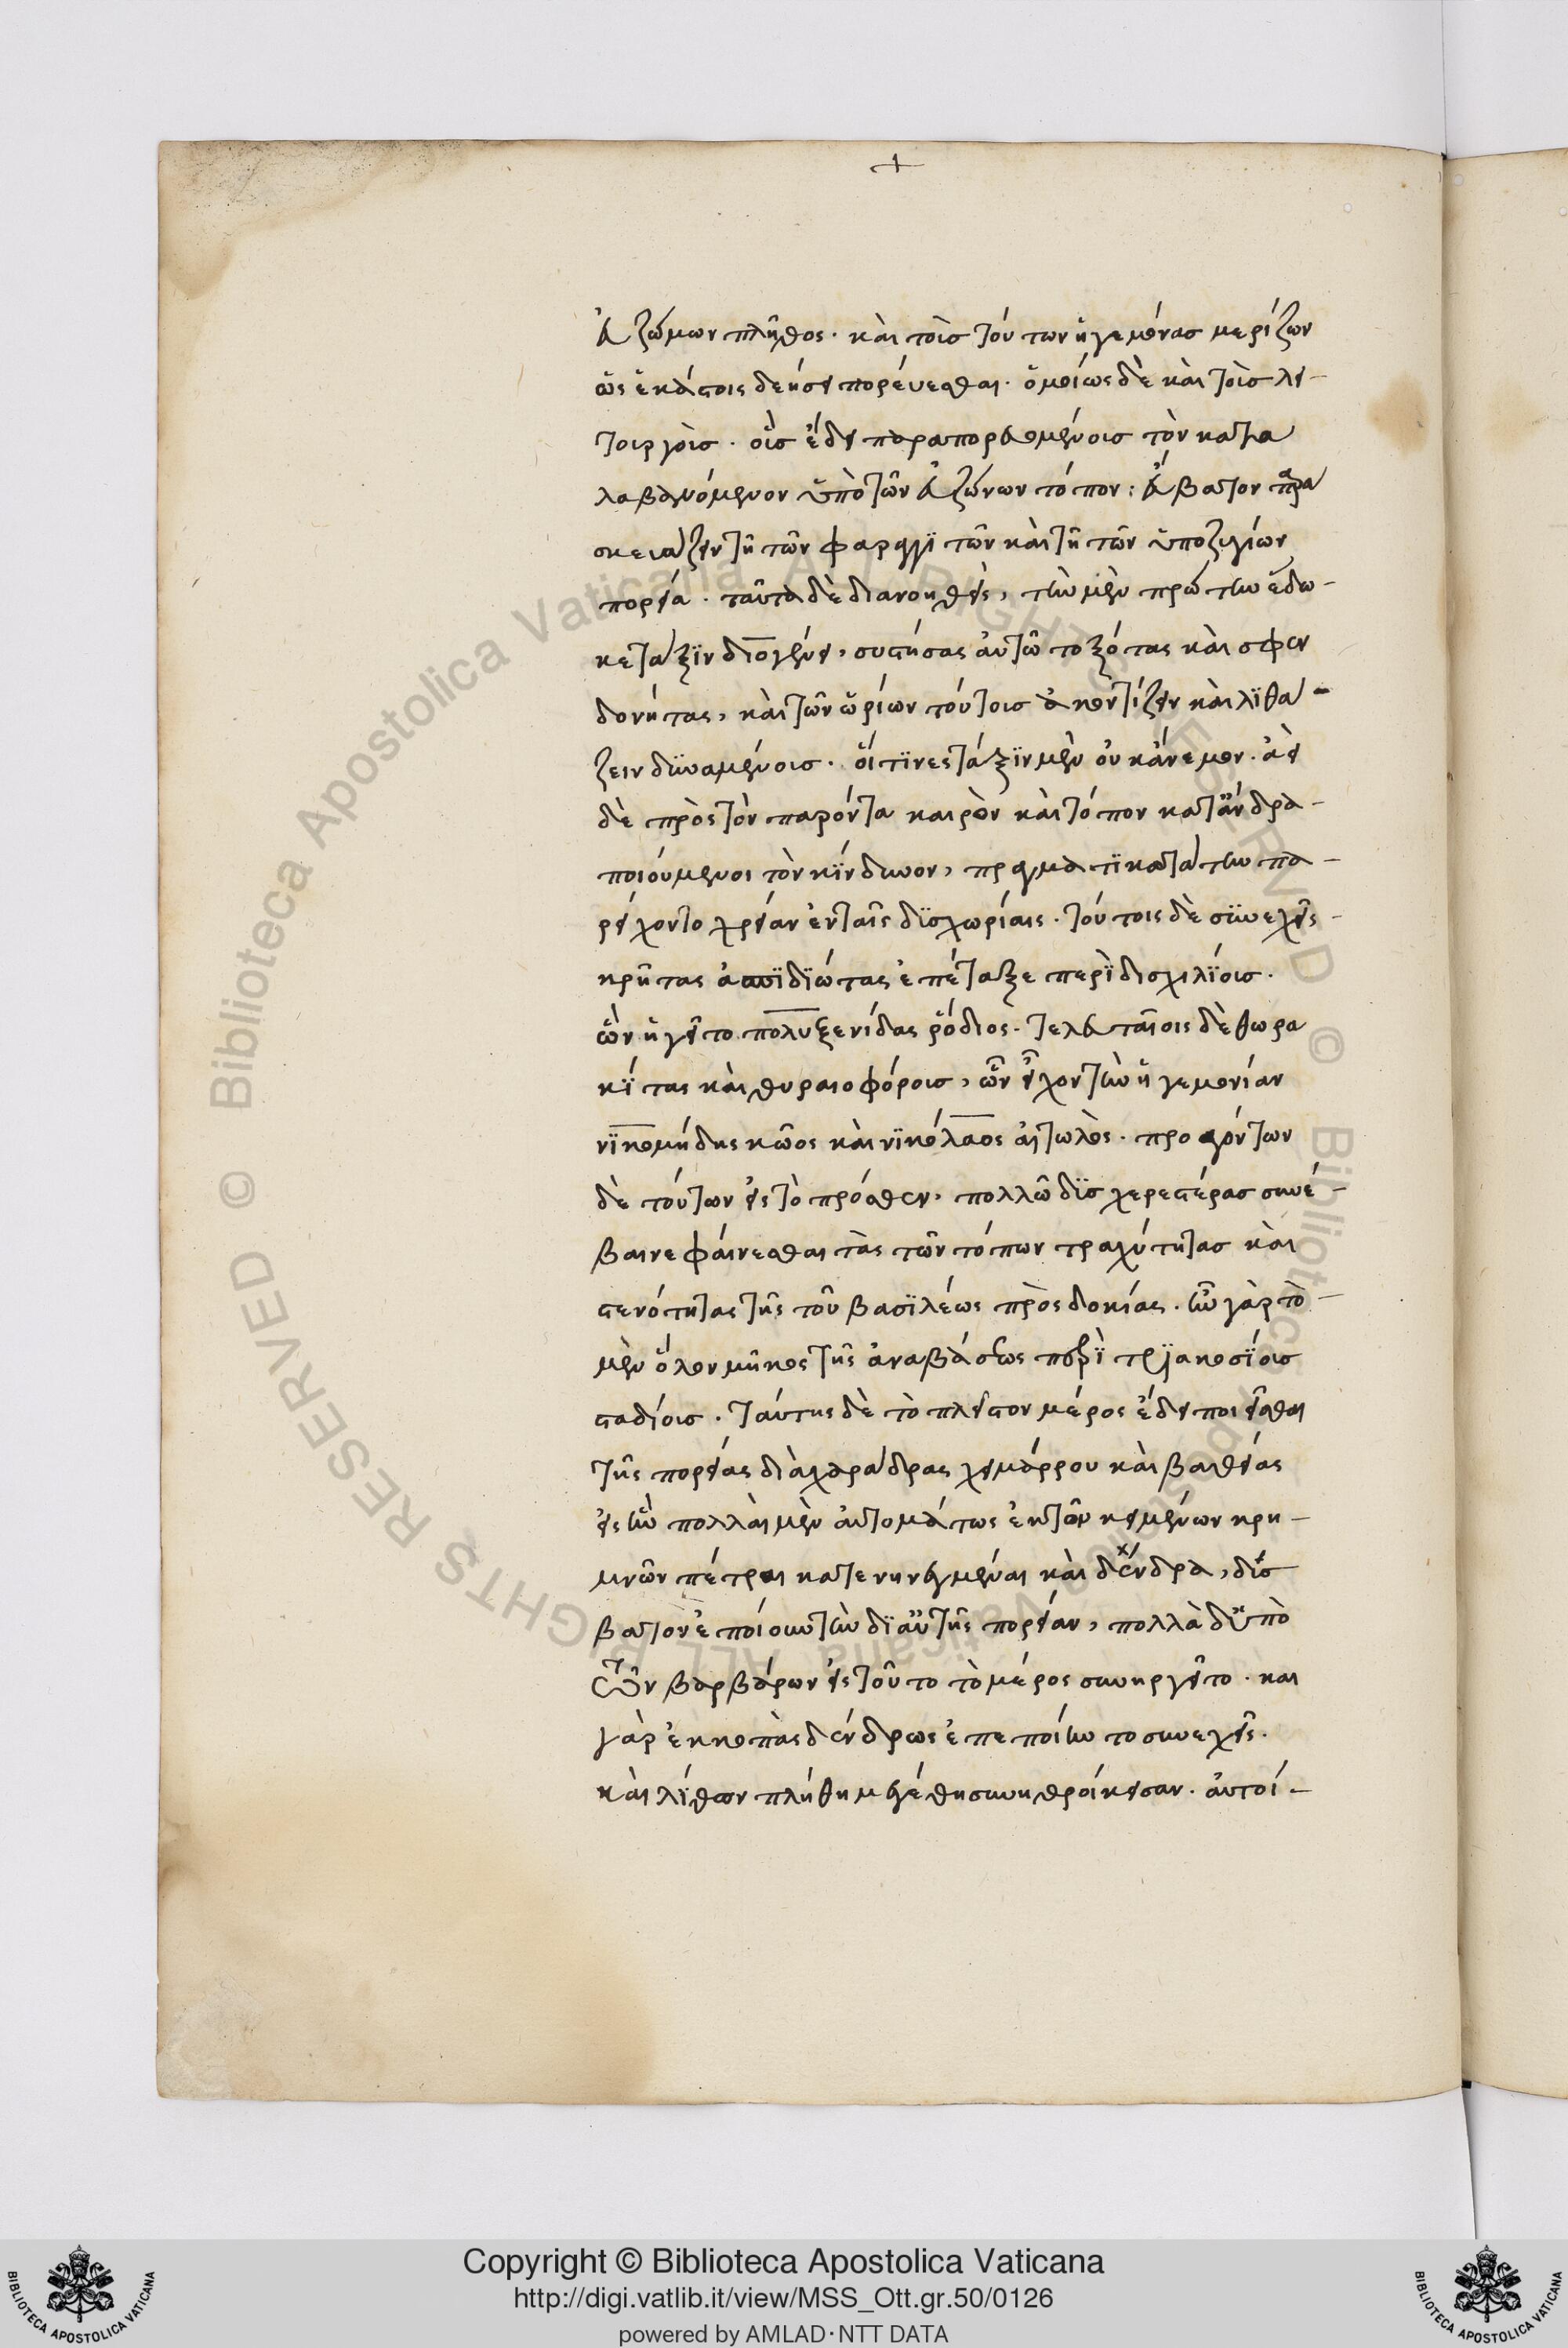 +
εὐζώνων πλῆθος. καὶ τοὺς τούτων ἡγεμόνας μερίζων
ὡς ἑκάστοις δεήσει πορεύεσθαι. ὁμοίως δὲ καὶ τοὺς λει-
τουργοὺς. οὓς ἔδει παραπορευομένους τὸν κατα
λαβανόμενον ὑπὸ τῶν εὐζώνων τόπον: εὔβατον παρα
σκευάζειν τῆ τῶν φαραγγϊτῶν καὶ τῆ τῶν ὑποζυγίων
πορεία. ταῦτα δὲ διανοηθεὶς, τὴν μὲν πρώτην ἔδω-
κε τάξϊν διογένει, συστήσας αὐτῶ τοξότας καὶ σφεν
δονήτας, καὶ τῶν ὡρίων τούτοις ἀκοντίζειν καὶ λϊθά-
ζειν δϋναμένοις. οἵτϊνες τάξϊν μὲν οὐκ ἄνεμον. ἀεὶ
δὲ πρὸς τὸν παρόντα καιρὸν καὶ τόπον κατ' ἄνδρα-
ποιούμενοι τὸν κίνδυνον, πραγματϊκωτάτην πα-
ρείχοντο χρείαν ἐν ταῖς δϊσχωρίαις. τούτοις δὲ σϋνεχεῖς-
κρῆτας ἀσπϊδϊώτας ἐπέταξε περὶ δισχιλϊους.
ὧν ἡγεῖτο πολυξενίδας ῥόδιος. τελευταίους δὲ θωρα
κίτας καὶ θυραιοφόρους, ὧν εἶχον τὴν ἡγεμονίαν
νϊκομήδης κῶος καὶ νϊκόλαος αἰτωλὸς. προαγόντων
δὲ τούτων εἰς τὸ πρόσθεν, πολλῶ δϊσχερεστέρας συνέ-
βαινε φαίνεσθαι τὰς τῶν τόπων τραχύτητας καὶ
στενότητας τῆς τοῦ βασϊλέως προσδοκίας. ἦν γὰρ τὸ-
μὲν ὅλον μῆκος τῆς ἀναβάσεως περὶ τρϊακοσϊους
σταδίους. ταύτης δὲ τὸ πλεῖστον μέρος ἔδει ποιεῖσθαι
τῆς πορείας διὰ χαράδρας χειμάρρου καὶ βαθείας
εἰς ἣν πολλαὶ μὲν αὐτομάτως ἐκ τῶν κειμένων κρη-
μνῶν πέτραι κατενηνεγμέναι καὶ δένδρα, δύσ
βατον ἐποίουν τὴν δϊ αὐτῆς πορείαν, πολλὰ δ' ὑπὸ
τῶν βαρβάρων εἰς τοῦτο τὸ μέρος συνηργεῖτο. και
γὰρ ἐκκοπὰς δένδρως ἐπεποίηντο συνεχεῖς.
καὶ λίθων πλήθη μεγέθη συνηθροίκεισαν. αὐτοί-
Copyright © Biblioteca Apostolica Vaticana
http://digi.vatlib.it/view/MSS_Ott.gr.50/0126
powered by AMLAD·NTT DATA